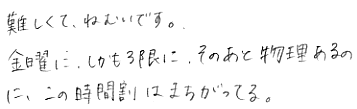 難しくて、ねむいです。
金曜に、しかも3限に、そのあと物理あるの
に、この時間割はまちがってる。